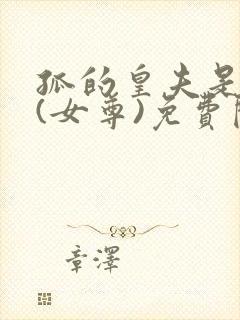 孤的皇夫是
(女尊)免費
章澤